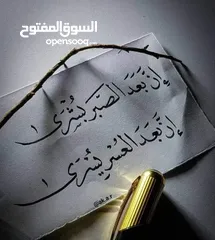 السوق المفتوح
opensooq.com
إن بعد الصبر بشرى
إن بعد العسر يسرى